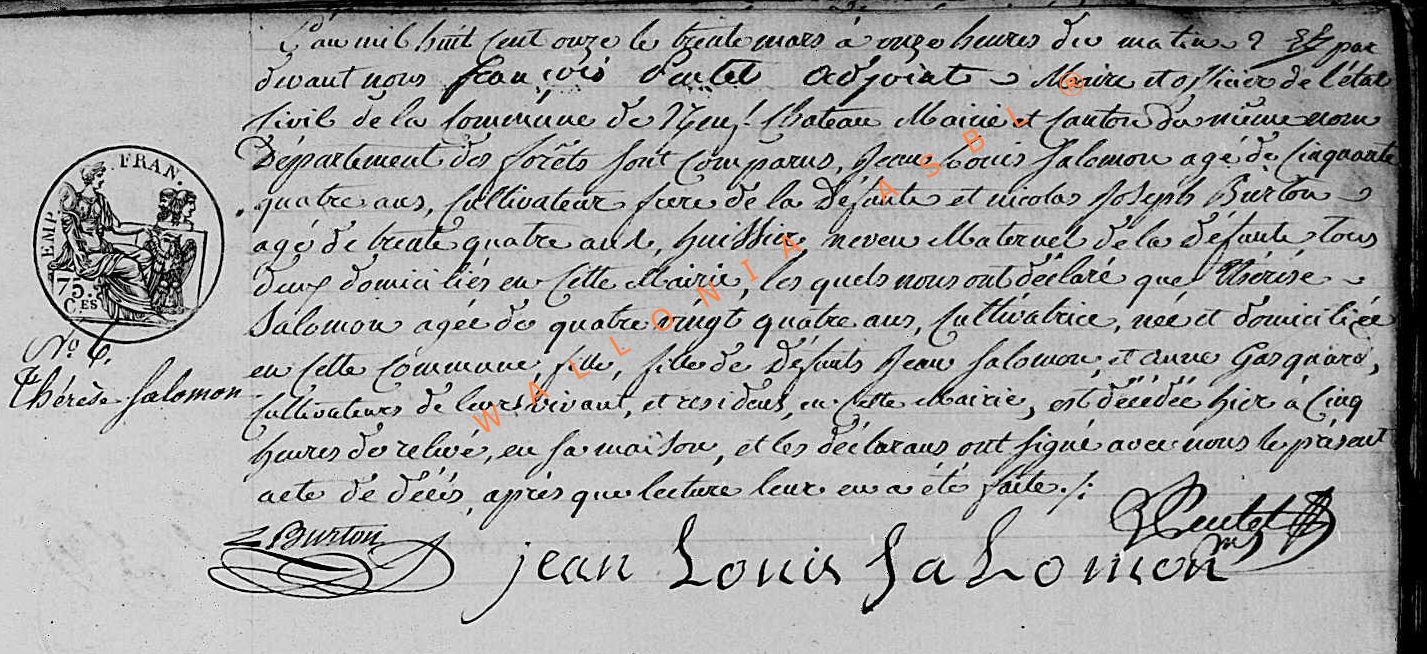 L'an mil huit cent onze le trente mars à onze heures du matin par
devant nous françois adjoint Maire et officier de l'état
Civil de la Commune de Neuf Chateau Mairie et Canton du même nom
Département des forêts sont comparus, Jean Louis Salomon agé de Cinquante
quatre ans, Cultivateur frere de la Défunte et nicolas Joseph Burton
agé de trente quatre ans, huissier neveu Maternel de la défunte tous
deux domiciliés en Cette Mairie, les quels nous ont déclaré que thérése
Salomon agée de quatre vingt quatre ans, Cultivatrice, née et domiciliée
en cette Commune, fille, fille de défunts Jean Salomon, et anne Gasquard,
Cultivateurs de leurs vivant, et residens, en Cette Mairie, est décédée hier à Cinq
heures de relivé, en sa maison, et les déclarans ont signé avec nous le présent
acte de décés, après que lecture leur en a été faite ./.
EMP. FRAN.
75.
C.ES
N° 6.
thérèse Salomon
Burton
jean Louis SaLomon
WALLONIA ASBL ®